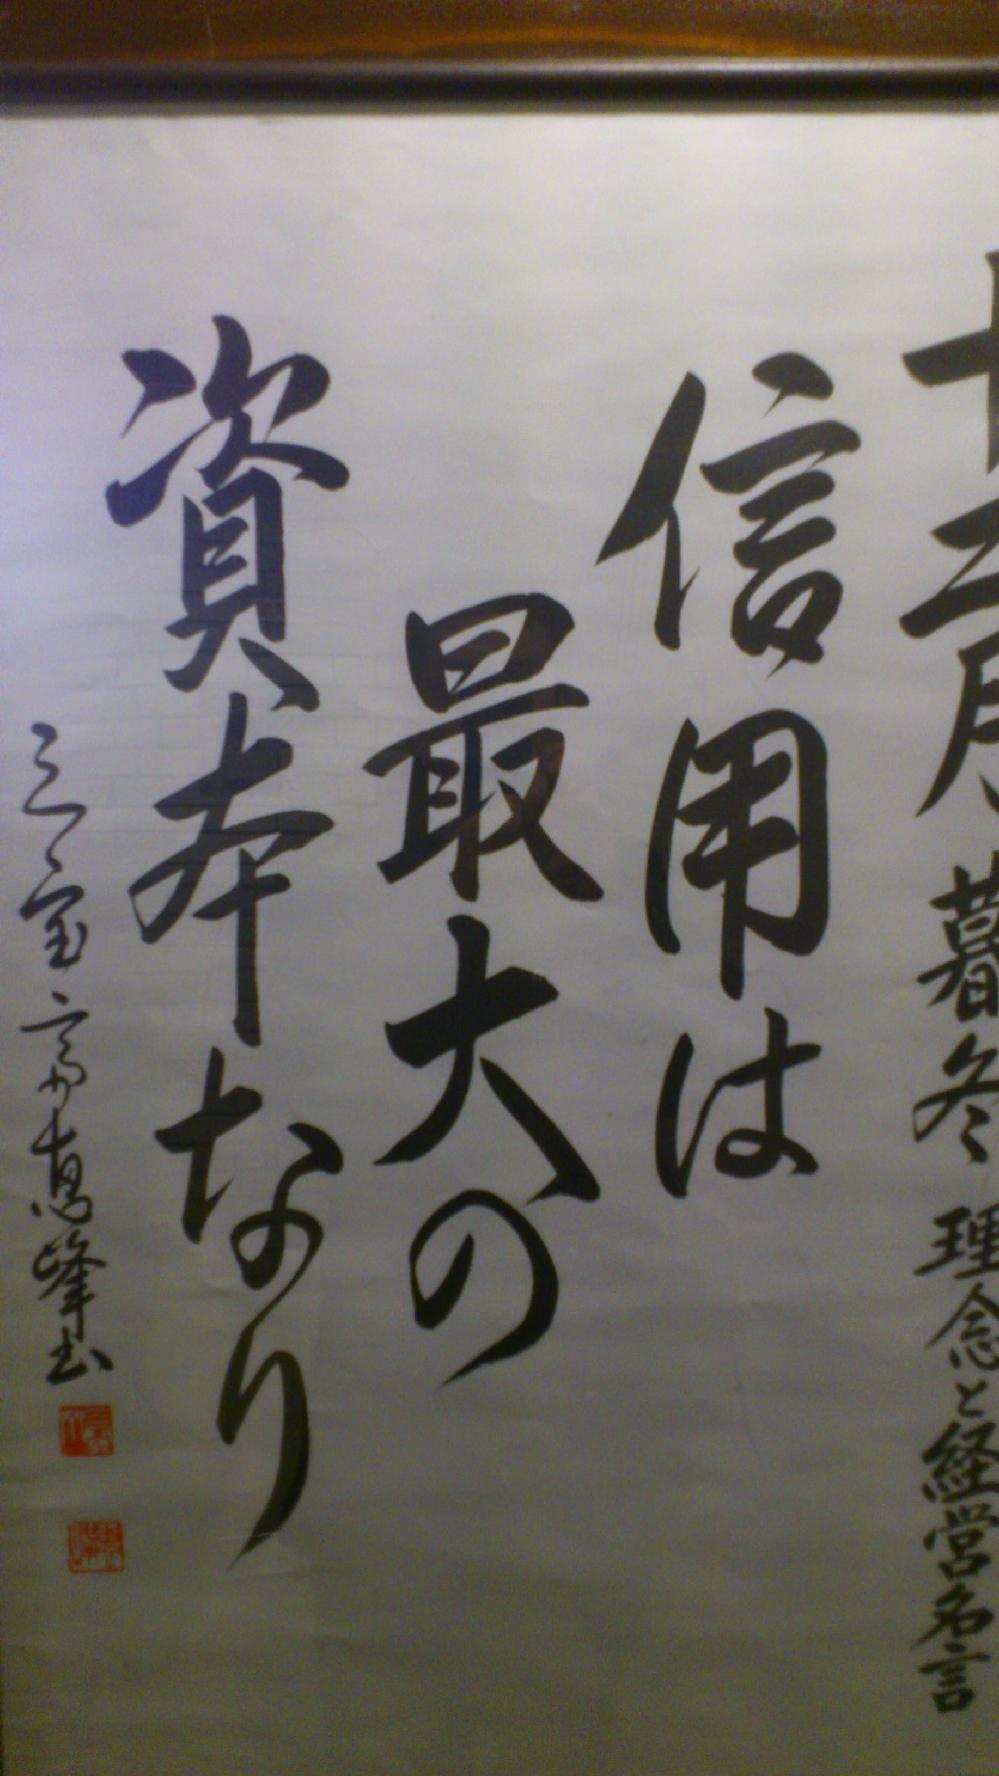 十二月 暮冬 理念と経営名言
信用は
最大の
資本なり